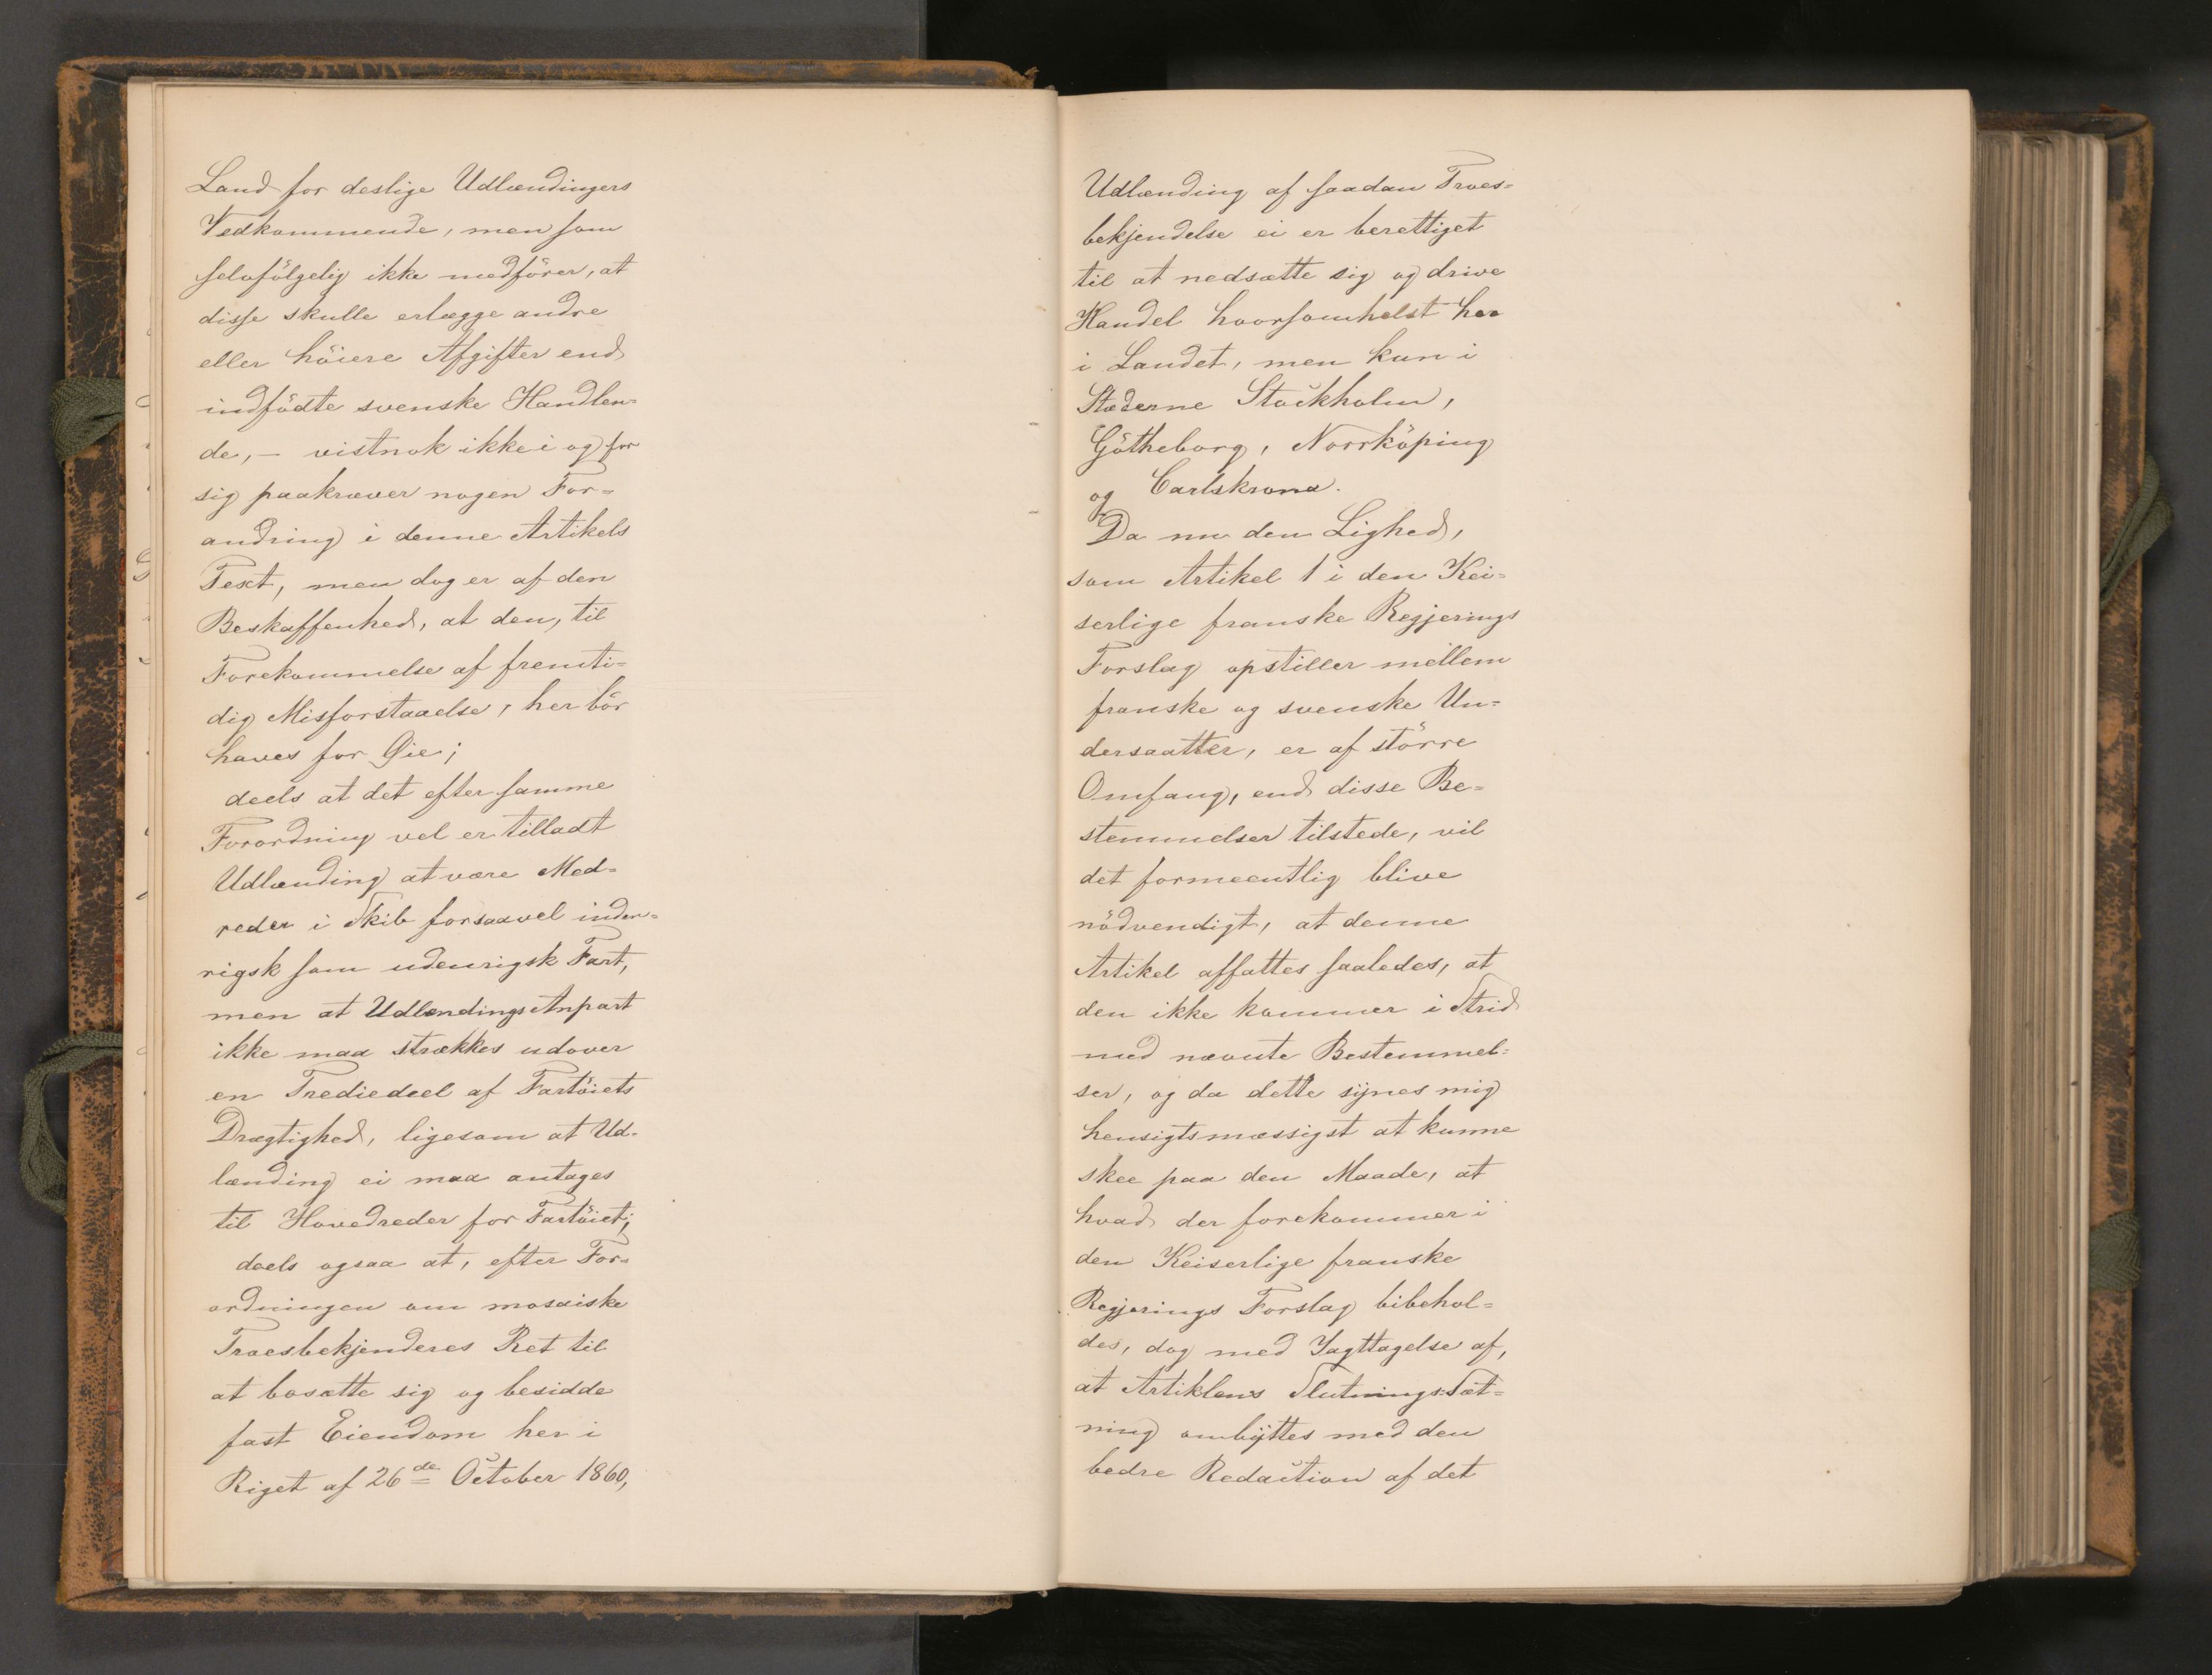 Land for deslige Udlændingers
Vedkommende, men som
selvfölgelig ikke medförer, at
disse skulle erlægge andre
eller höiere Afgifter end
indfödte svenske Handlen=
de, - vistnok ikke i og for
sig paakræver nogen For=
andring i denne Artikels
Text, men dog er af den
Beskaffenhed, at den, til
Forekommelse af fremti=
dig Misforstaaelse, her bör
haves for Öie;
deels at det efter samme
Forordning vel er tilladt
Udlænding at være Med=
reder i Skib for saavel inden=
rigsk som udenrigsk Fart,
men at Udlændings Anpart
ikke maa strækkes udover
en Trediedeel af Fartöiets
Drægtighed, ligesom at Ud=
lænding ei maa antages
til Hovedreder for Fartöiet;
deels ogsaa at, efter For=
ordningen om mosaiske
Troesbekjenderes Ret til
at bosætte sig og besidde
fast Eiendom her i
Riget af 26de October 1860,
Udlænding af saadan Troes=
bekjendelse ei er berettiget
til at nedsætte sig og drive
Handel hvorsomhelst her
i Landet, men kun i
Stæderne Stockholm,
Götheborg, Norrköping
og Carlskrona.
Da nu den Lighed,
som Artikel 1 i den Kei=
serlige franske Regjerings
Forslag opstiller mellem
franske og svenske Un=
dersaatter, er af större
Omfang, end disse Be=
stemmelser tilstede, vil
det formeentlig blive
nödvendigt, at denne
Artikel affattes saaledes, at
den ikke kommer i Strid
med nævnte Bestemmel=
ser, og da dette synes mig
hensigtsmæssigst at kunne
skee paa den Maade, at
hvad der forekommer i
den Keiserlige franske
Regjerings Forslag bibehol=
des, dog med Iagttagelse af,
at Artiklens Slutnings-Sæt=
ning ombyttes med den
bedre Redaction af det